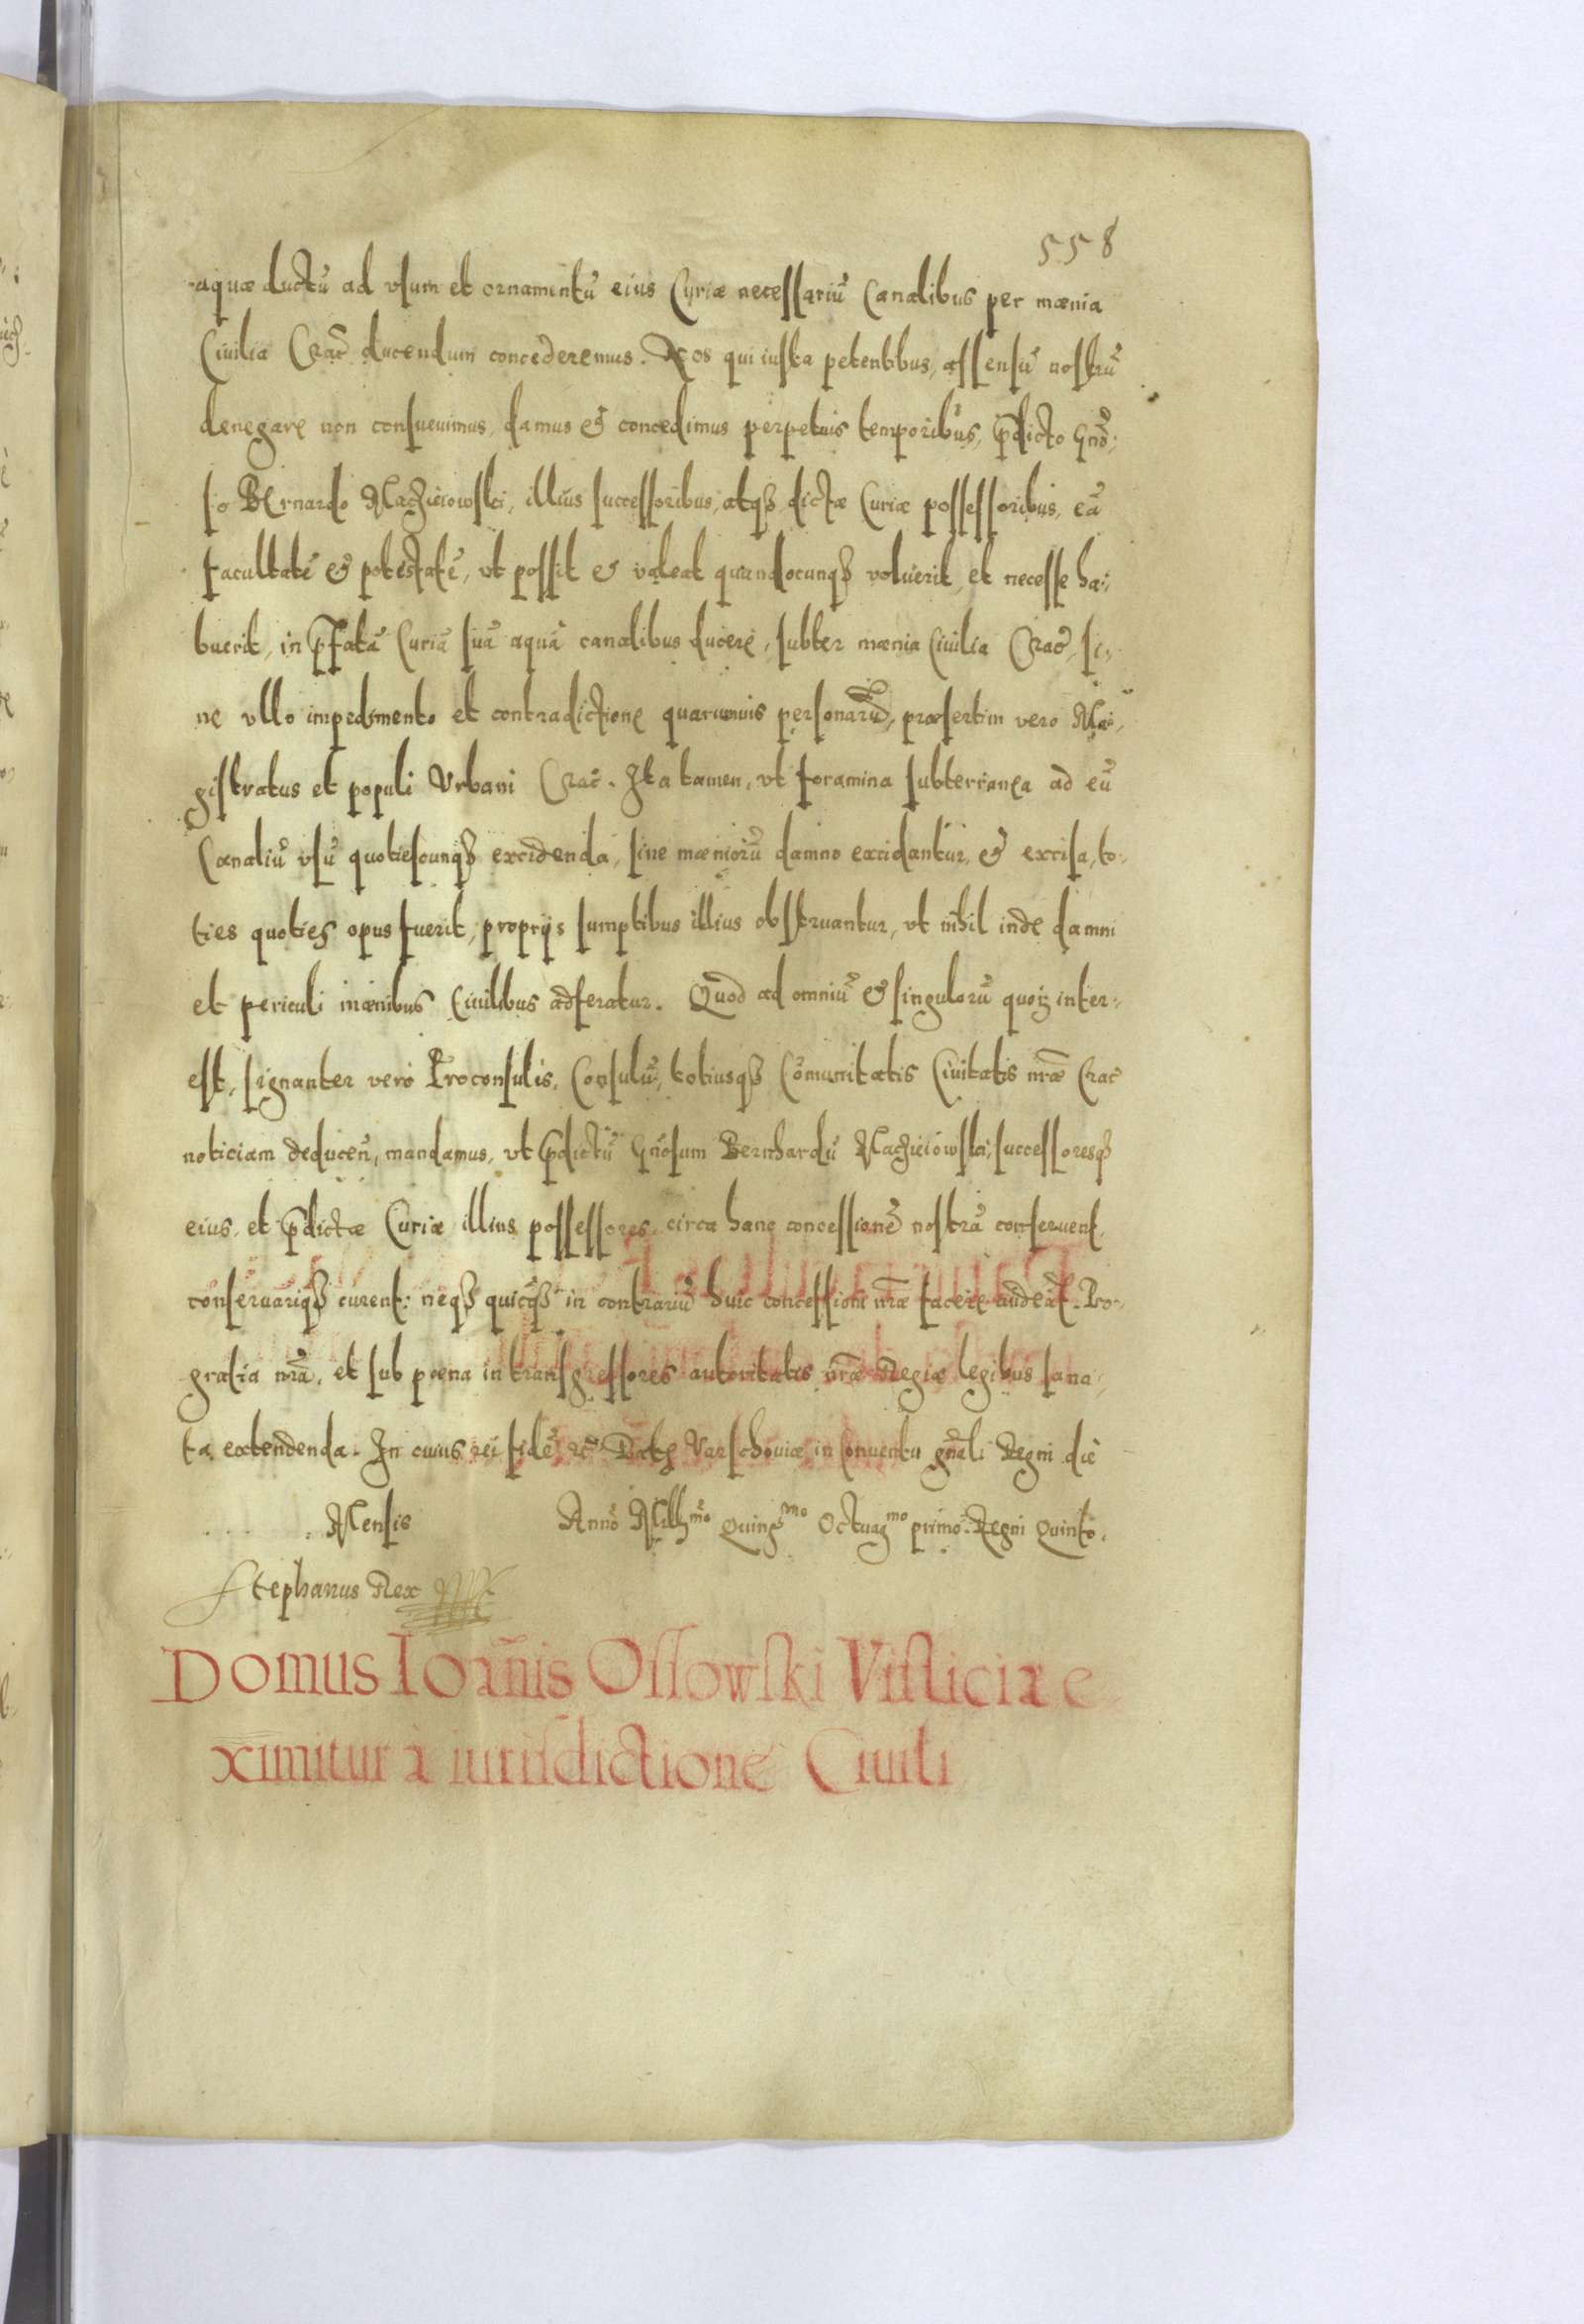 558
aquæ ductū ad vſum et ornamentū eius Curiæ neceſſariū Canalibus per mænia
Ciuilia Crac̄ ducendum concederemus. Nos qui iuſta petentibus, aſſenſū noſtrū
denegare non conſueuimus, damus & concedimus perpetuis temporibus, p̄dicto Gn̄o-
ſo Bernardo Maczieiowſki, illius ſucceſſoribus, atqꝫ dictæ Curiæ poſſeſſoribus, eā
facultatē & poteſtatē, vt poſſit & valeat quandocunqꝫ voluerit, et neceſſe ha-
buerit, in p̄fatā Curiā ſuā aquā canalibus ducere, ſubter mænia Ciuilia Crac̄, ſi-
ne vllo impedimento et contradictione quarumuis perſonarū, præſertim vero Ma-
giſtratus et populi Vrbani Crac̄. Ita tamen, vt foramina ſubterranea ad eū
Canaliū vſū quotieſcunqꝫ excidenda, ſine mæniorū damno excidantur, & exciſa, to-
ties quoties opus fuerit, proprijs ſumptibus illius obſtruantur, vt nihil inde damni
et periculi mænibus Ciuilibus adferatur. Quod ad omniū & ſingulorū quoꝝ inter-
eſt, ſignanter vero Proconſulis, Conſulū, totiusqꝫ Cōmunitatis Ciuitatis nr̄æ Crac̄
noticiam deducen̄, mandamus, vt p̄dictū Gn̄oſum Bernhardū Maczieiowſki, ſucceſſoresqꝫ
eius, et p̄dictæ Curiæ illius poſſeſſores circa hanc conceſſionē noſtrā conſeruent,
conſeruariqꝫ curent: neqꝫ quicq̄ꝫ in contrariū huic conceſſioni nr̄æ facere audeāt. Pro
gratia nr̄a, et ſub pœna in tranſgreſſores autoritatis nr̄æ Regiæ legibus ſanci-
ta extendenda. In cuius rei fidē ꝛc̄ Datꝫ Varſchouiæ in Conuentu gn̄ali Regni die
. . . . . Menſis Anno Milleſmo Quingmo Octuagmo primo. Regni Quinto.
Stephanus Rex
Domus Ioānis Oſſowſki Viſliciæ e
ximitur à iuriſdictione Ciuili